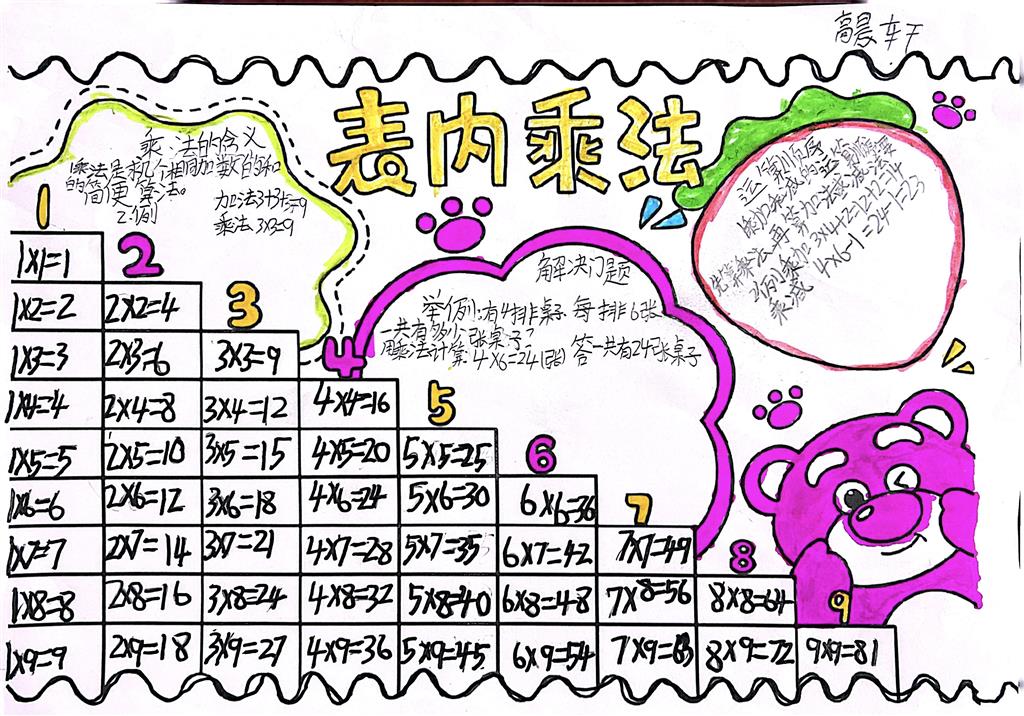 高晨轩
表内乘法
乘法的含义
乘法是求几个相同加数的和
的简便算法。
2.例 加法3+3+3=9
乘法3×3=9
运算顺序
乘加乘减的运算顺序
先算乘法再算加法或减法
2例乘加3×4+2=12+2=14
乘减 4×6-1=24-1=23
解决门题
举例:有4排桌子 每排6张
一共有多少张桌子?
用乘法计算 4×6=24(张) 答一共有24张桌子
1
2
3
4
5
6
7
8
9
1×1=1
1×2=2 2×2=4
1×3=3 2×3=6 3×3=9
1×4=4 2×4=8 3×4=12 4×4=16
1×5=5 2×5=10 3×5=15 4×5=20 5×5=25
1×6=6 2×6=12 3×6=18 4×6=24 5×6=30 6×6=36
1×7=7 2×7=14 3×7=21 4×7=28 5×7=35 6×7=42 7×7=49
1×8=8 2×8=16 3×8=24 4×8=32 5×8=40 6×8=48 7×8=56 8×8=64
1×9=9 2×9=18 3×9=27 4×9=36 5×9=45 6×9=54 7×9=63 8×9=72 9×9=81